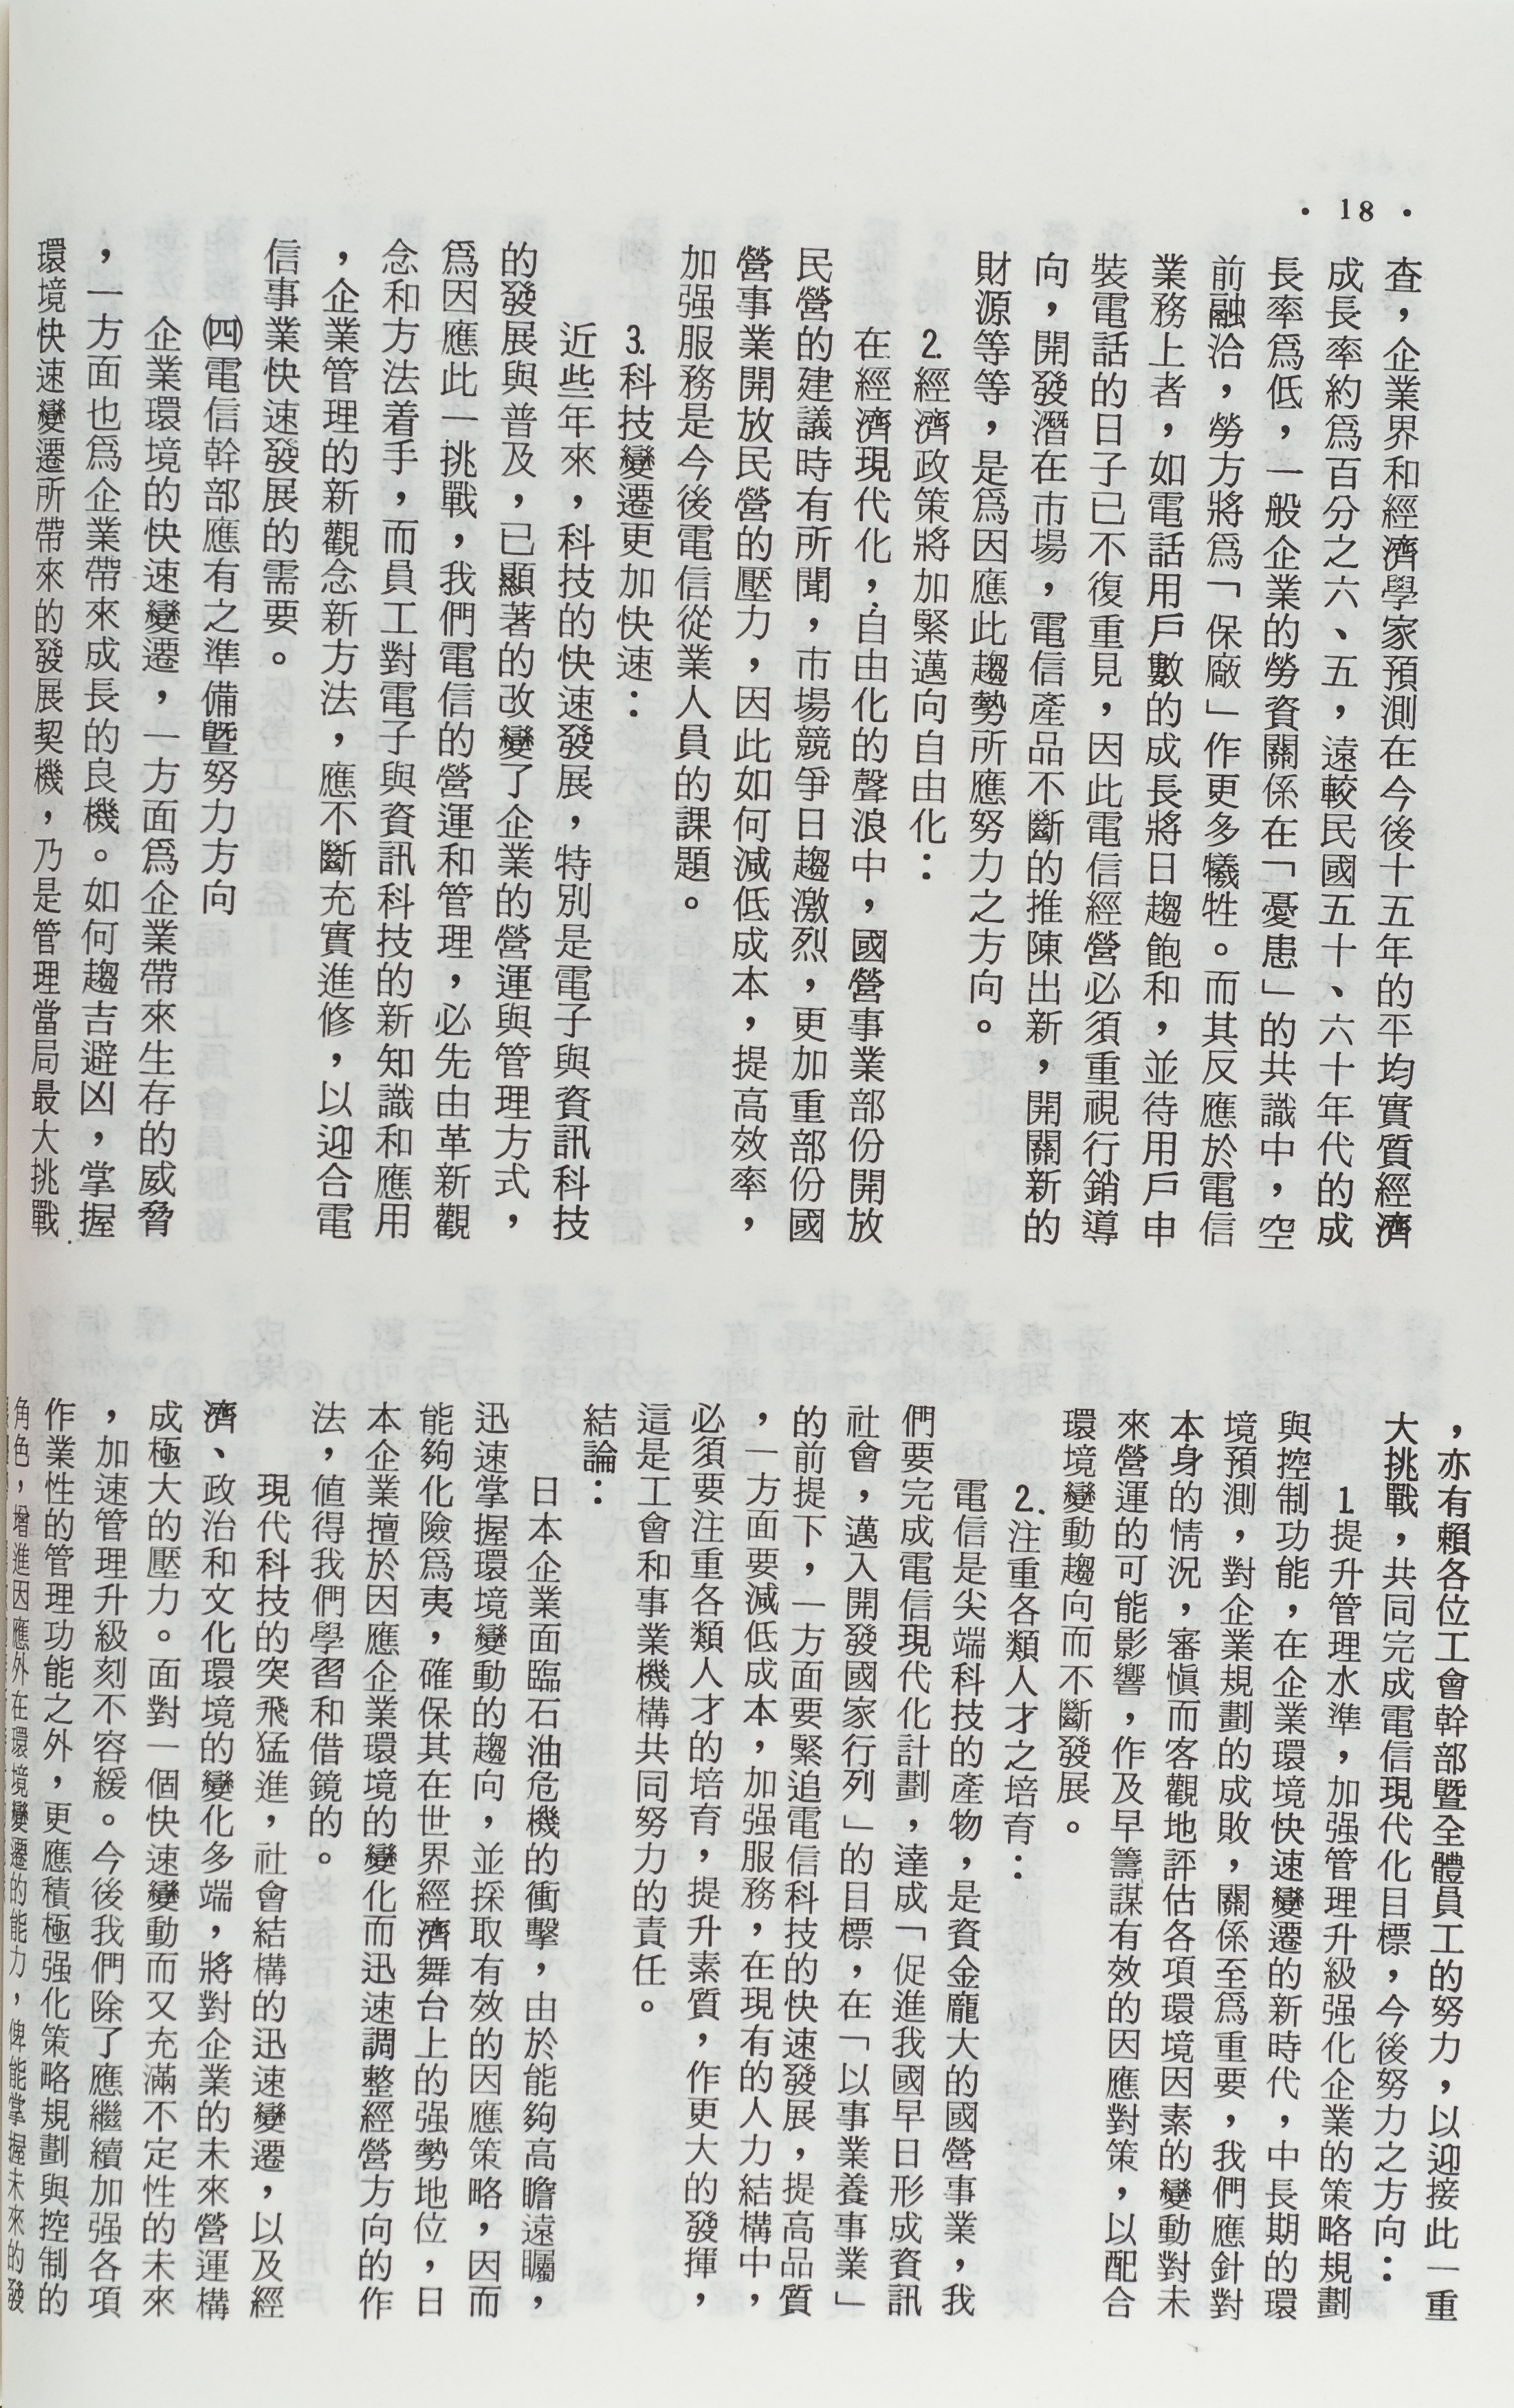 • 18 •
查，企業界和經濟學家預測在今後十五年的平均實質經濟
成長率約為百分之六、五，遠較民國五十、六十年代的成
長率爲低，一般企業的勞資關係在「憂患」的共識中，空
前融洽，勞方將爲「保廠」作更多犧牲。而其反應於電信
業務上者，如電話用戶數的成長將日趨飽和，並待用戶申
裝電話的日子已不復重見，因此電信經營必須重視行銷導
向，開發潛在市場，電信產品不斷的推陳出新，開闢新的
財源等等，是爲因應此趨勢所應努力之方向。
2.經濟政策將加緊邁向自由化：
在經濟現代化，自由化的聲浪中，國營事業部份開放
民營的建議時有所聞，市場競爭日趨激烈，更加重部份國
營事業開放民營的壓力，因此如何減低成本，提高效率，
加强服務是今後電信從業人員的課題。
3.科技變遷更加快速：
近些年來，科技的快速發展，特別是電子與資訊科技
的發展與普及，已顯著的改變了企業的營運與管理方式，
爲因應此一挑戰，我們電信的營運和管理，必先由革新觀
念和方法着手，而員工對電子與資訊科技的新知識和應用
，企業管理的新觀念新方法，應不斷充實進修，以迎合電
信事業快速發展的需要。
㈣電信幹部應有之準備暨努力方向
企業環境的快速變遷，一方面爲企業帶來生存的威脅
，一方面也爲企業帶來成長的良機。如何趨吉避凶，掌握
環境快速變遷所帶來的發展契機，乃是管理當局最大挑戰
，亦有賴各位工會幹部暨全體員工的努力，以迎接此一重
大挑戰，共同完成電信現代化目標，今後努力之方向：
1提升管理水準，加强管理升級强化企業的策略規劃
與控制功能，在企業環境快速變遷的新時代，中長期的環
境預測，對企業規劃的成敗，關係至爲重要，我們應針對
本身的情況，審慎而客觀地評估各項環境因素的變動對未
來營運的可能影響，作及早籌謀有效的因應對策，以配合
環境變動趨向而不斷發展。
2.注重各類人才之培育：
電信是尖端科技的產物，是資金龐大的國營事業，我
們要完成電信現代化計劃，達成「促進我國早日形成資訊
社會，邁入開發國家行列」的目標，在「以事業養事業」
的前提下，一方面要緊追電信科技的快速發展，提高品質
，一方面要減低成本，加强服務，在現有的人力結構中，
必須要注重各類人才的培育，提升素質，作更大的發揮，
這是工會和事業機構共同努力的責任。
結論：
日本企業面臨石油危機的衝擊，由於能夠高瞻遠矚，
迅速掌握環境變動的趨向，並採取有效的因應策略，因而
能夠化險爲夷，確保其在世界經濟舞台上的强勢地位，日
本企業擅於因應企業環境的變化而迅速調整經營方向的作
法，值得我們學習和借鏡的。
現代科技的突飛猛進，社會結構的迅速變遷，以及經
濟、政治和文化環境的變化多端，將對企業的未來營運構
成極大的壓力。面對一個快速變動而又充滿不定性的未來
，加速管理升級刻不容緩。今後我們除了應繼續加强各項
作業性的管理功能之外，更應積極强化策略規劃與控制的
角色，增進因應外在環境變遷的能力，俾能掌握未來的發